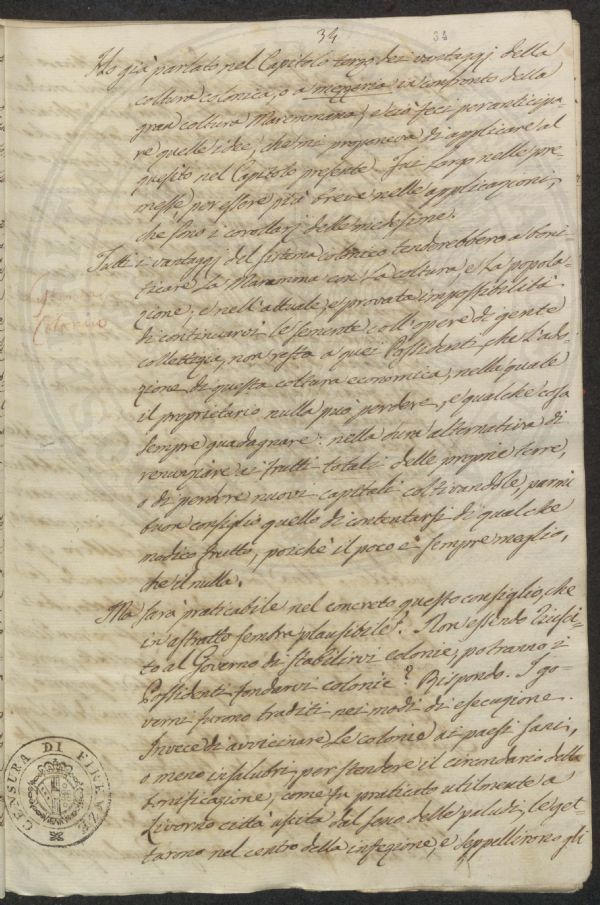 34
34
Ho già parlato nel Capitolo terzo dei vantaggj della
coltura colonica, o a mezzeria in confronto della
gran coltura Maremmana, e ciò feci per anticipa-
re quelle idee, che mi proponeva di applicare al
quesito nel Capitolo presente. Fui largo nelle pre-
messe per essere più breve nelle applicazioni,
che sono i corollarj delle medesime.
Tutti i vantaggi del sistema colonico tenderebbero a boni-
ficare la Maremma con la coltura e la popola-
zione, e nell'attuale, e provata impossibilità
di continuarvi le semente coll'opere di gente
collettizia, non resta a quei Possidenti, che l'ado-
zione di questa coltura economica, nella quale
il proprietario nulla può perdere, e qualche cosa
sempre guadagnare: nella dura alternativa di
renunziare ai frutti totali delle proprie terre,
o di perdere nuovi capitali coltivandole, parmi
buon consiglio quello di contentarsi di qualche
modico frutto, poichè il poco è sempre meglio,
che il nulla.
Colonico
Ma sarà praticabile nel concreto questo consiglio, che
in astratto sembra plausibile? Non essendo riusci-
to al Governo di stabilirvi colonie, potranno i
Possidenti fondarvi colonie? Rispondo. I go-
verni furono traditi nei modi di esecuzione.
Invece di avvicinare le colonie ai paesi sani,
o meno insalubri, per stendere il circondario della
bonificazione, come fu praticato utilmente a
Livorno città uscita dal seno delle paludi, le get-
tarono nel centro della infezione, e seppellirono gli
CENSURA DI FIRENZE